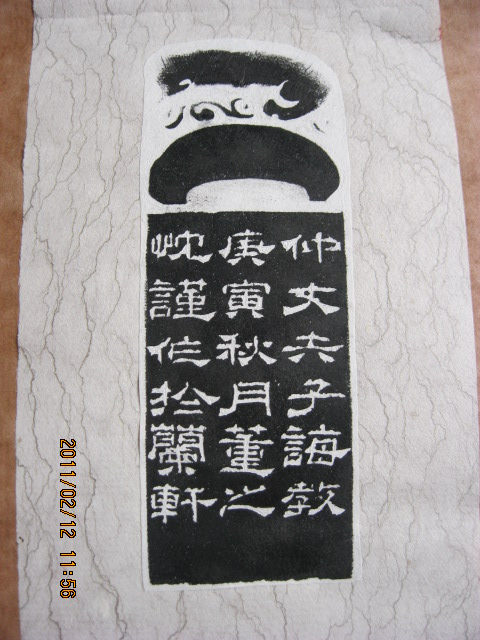 仲丈夫子誨教
庚寅秋月董之
忱謹作於蘭軒
2011/02/12 11:56